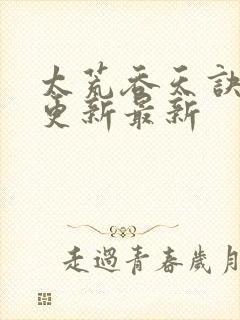 太荒吞天訣
更新最新
走過青春歲月